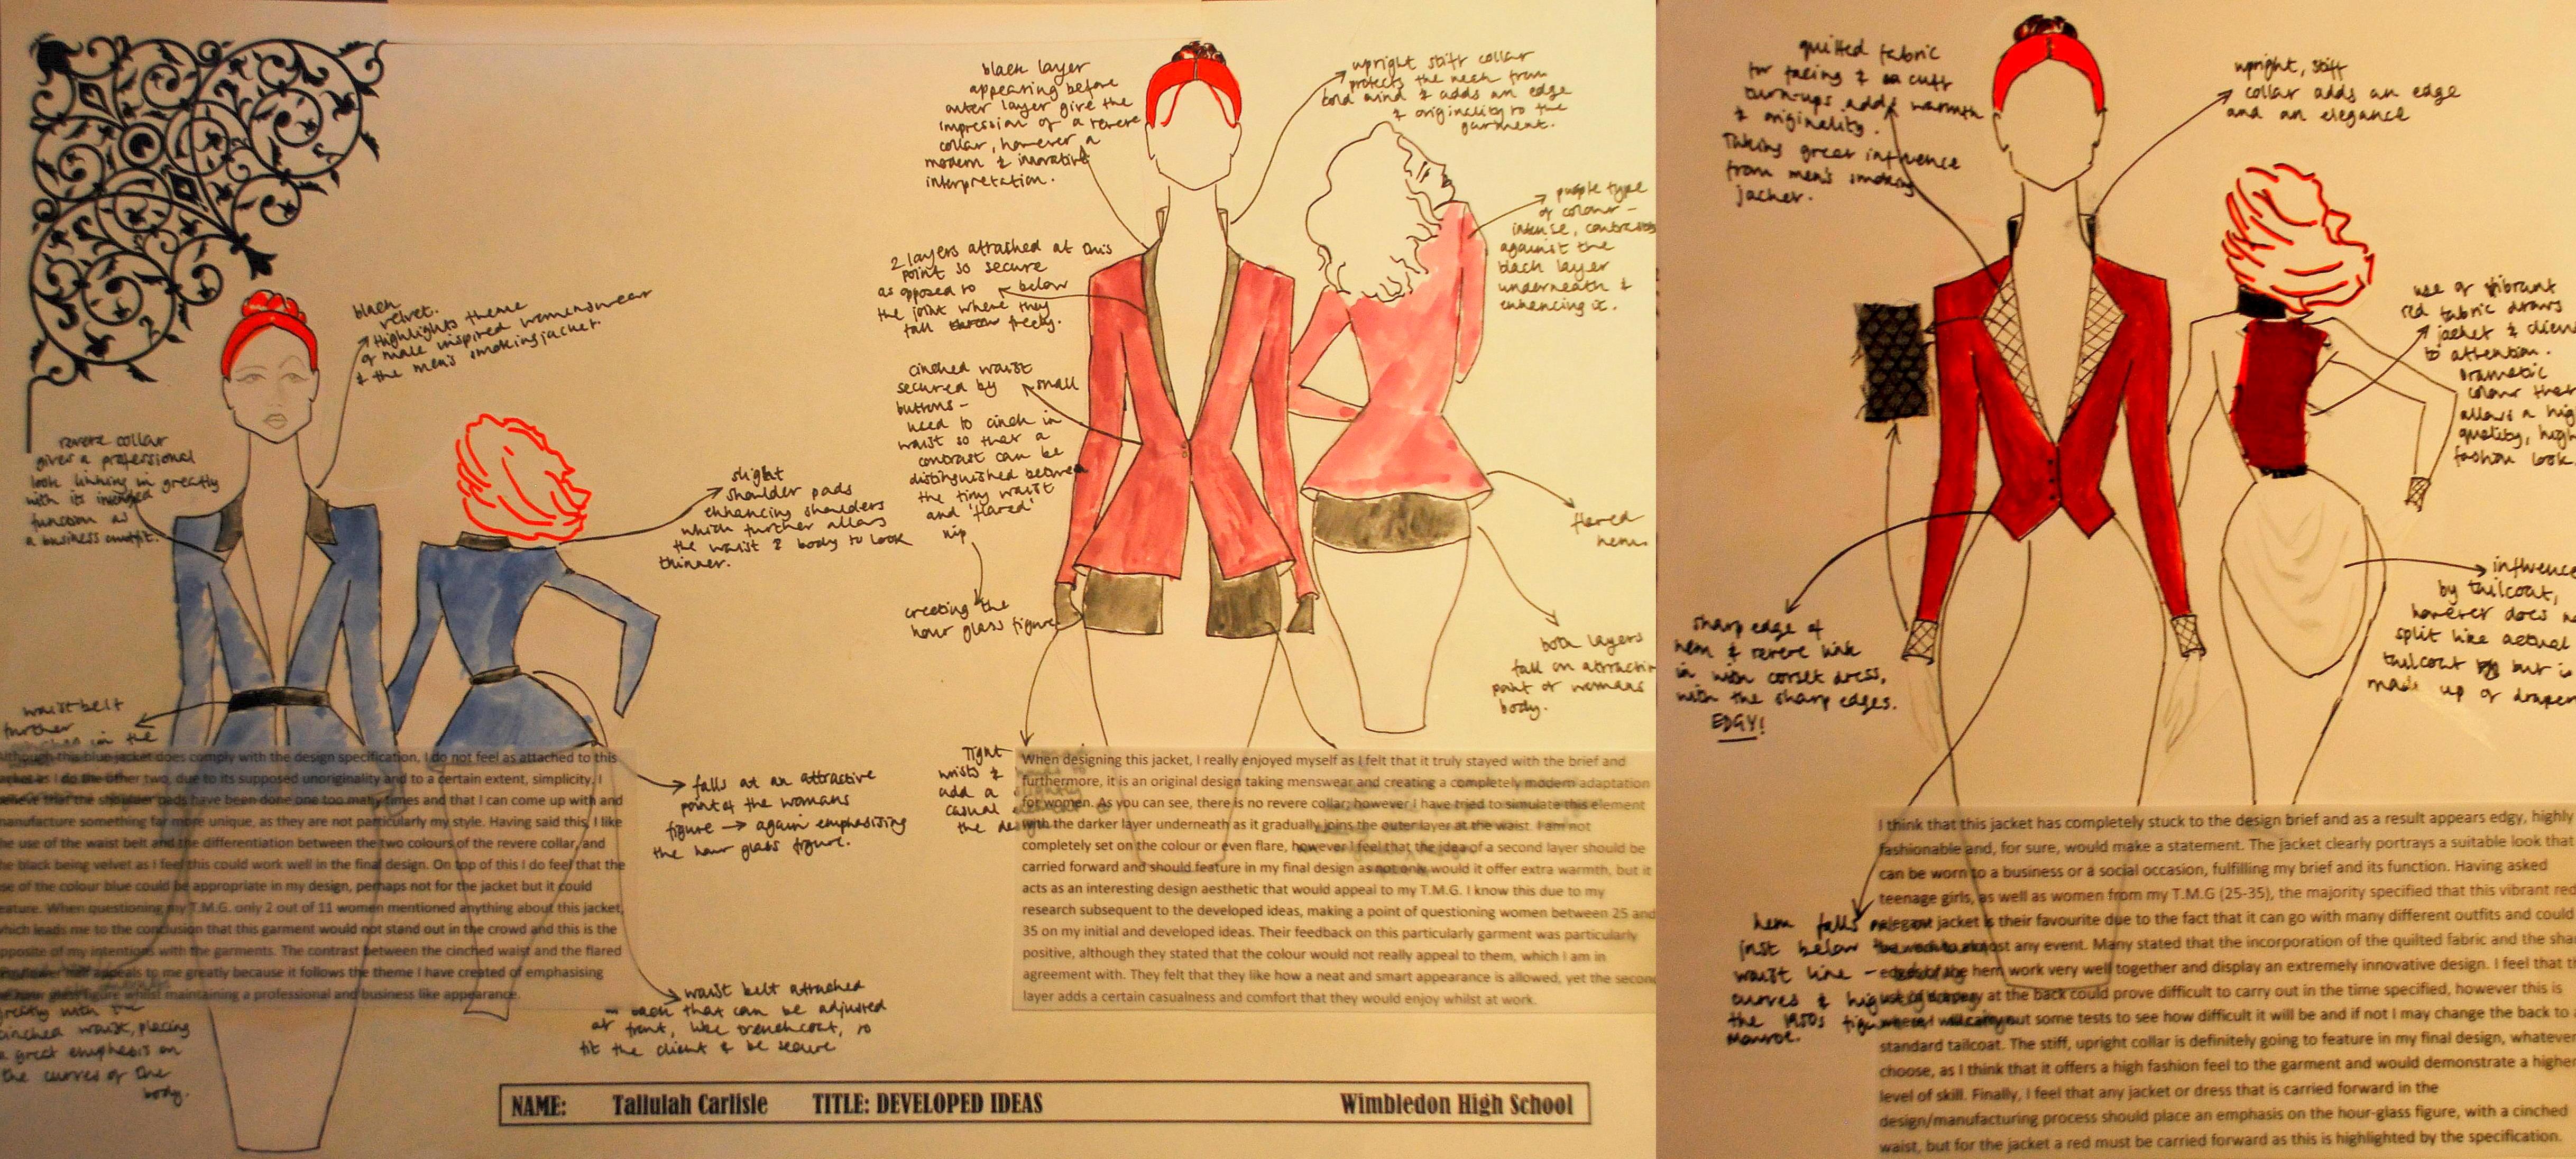 black
velvet.
Highlights theme
of male inspired womenswear
& the men's smoking jacket.
revere collar
gives a professional
look linking in greatly
with its intended
function as
a business outfit.
slight
shoulder pads
enhancing shoulders
which further allows
the waist & body to look
thinner.
waist belt
further
in the
falls at an attractive
point of the womans
figure → again emphasising
the hour glass figure.
waist belt attached
back that can be adjusted
at front, like trenchcoat, so
fit the client & be secure
Although this blue jacket does comply with the design specification, I do not feel as attached to this
jacket as I do the other two, due to its supposed unoriginality and to a certain extent, simplicity. I
believe that the shoulder pads have been done one too many times and that I can come up with and
manufacture something far more unique, as they are not particularly my style. Having said this, I like
the use of the waist belt and the differentiation between the two colours of the revere collar, and
the black being velvet as I feel this could work well in the final design. On top of this I do feel that the
use of the colour blue could be appropriate in my design, perhaps not for the jacket but it could
feature. When questioning my T.M.G. only 2 out of 11 women mentioned anything about this jacket,
which leads me to the conclusion that this garment would not stand out in the crowd and this is the
opposite of my intentions with the garments. The contrast between the cinched waist and the flared
half appeals to me greatly because it follows the theme I have created of emphasising
figure whilst maintaining a professional and business like appearance.
greatly with the
cinched waist, placing
a great emphasis on
the curves of the
body.
black layer
appearing before
outer layer give the
impression of a revere
collar, however a
modern & innovative
interpretation.
upright stiff collar
protects the neck from
cold wind & adds an edge
& originality to the
garment.
2 layers attached at this
point so secure
as opposed to below
the joint where they
fall freely.
purple type
of colour –
intense, contrasts
against the
black layer
underneath &
enhancing it.
cinched waist
secured by small
buttons –
need to cinch in
waist so that a
contrast can be
distinguished between
the tiny waist
and 'flared'
hip
creating the
hour glass figure
flared
hem.
both layers
fall on attractive
point of womans
body.
Tight
wrists &
add a
casual
the
When designing this jacket, I really enjoyed myself as I felt that it truly stayed with the brief and
furthermore, it is an original design taking menswear and creating a completely modern adaptation
for women. As you can see, there is no revere collar; however I have tried to simulate this element
with the darker layer underneath as it gradually joins the outer layer at the waist. I am not
completely set on the colour or even flare, however I feel that the idea of a second layer should be
carried forward and should feature in my final design as not only would it offer extra warmth, but it
acts as an interesting design aesthetic that would appeal to my T.M.G. I know this due to my
research subsequent to the developed ideas, making a point of questioning women between 25 and
35 on my initial and developed ideas. Their feedback on this particularly garment was particularly
positive, although they stated that the colour would not really appeal to them, which I am in
agreement with. They felt that they like how a neat and smart appearance is allowed, yet the second
layer adds a certain casualness and comfort that they would enjoy whilst at work.
NAME: Tallulah Carlisle TITLE: DEVELOPED IDEAS Wimbledon High School
quilted fabric
for facing & cuff
turn-ups adds warmth
& originality.
Taking great influence
from men's smoking
jacket.
upright, stiff
collar adds an edge
and an elegance
use of vibrant
red fabric draws
jacket & client
to attention.
Dramatic
colour that
allows a high
quality, high
fashion look.
sharp edge of
hem & revere link
in with corset dress,
with the sharp edges.
EDGY!
influence
by tailcoat,
however does
split like actual
tailcoat but is
made up of
hem falls
just below
waist line –
curves &
the 1950s
Monroe.
I think that this jacket has completely stuck to the design brief and as a result appears edgy, highly
fashionable and, for sure, would make a statement. The jacket clearly portrays a suitable look that
can be worn to a business or a social occasion, fulfilling my brief and its function. Having asked
teenage girls, as well as women from my T.M.G (25-35), the majority specified that this vibrant red
elegant jacket is their favourite due to the fact that it can go with many different outfits and could
be worn to almost any event. Many stated that the incorporation of the quilted fabric and the
edges of the hem work very well together and display an extremely innovative design. I feel that
at the back could prove difficult to carry out in the time specified, however this is
where I will carry out some tests to see how difficult it will be and if not I may change the back to a
standard tailcoat. The stiff, upright collar is definitely going to feature in my final design, whatever
choose, as I think that it offers a high fashion feel to the garment and would demonstrate a higher
level of skill. Finally, I feel that any jacket or dress that is carried forward in the
design/manufacturing process should place an emphasis on the hour-glass figure, with a cinched
waist, but for the jacket a red must be carried forward as this is highlighted by the specification.